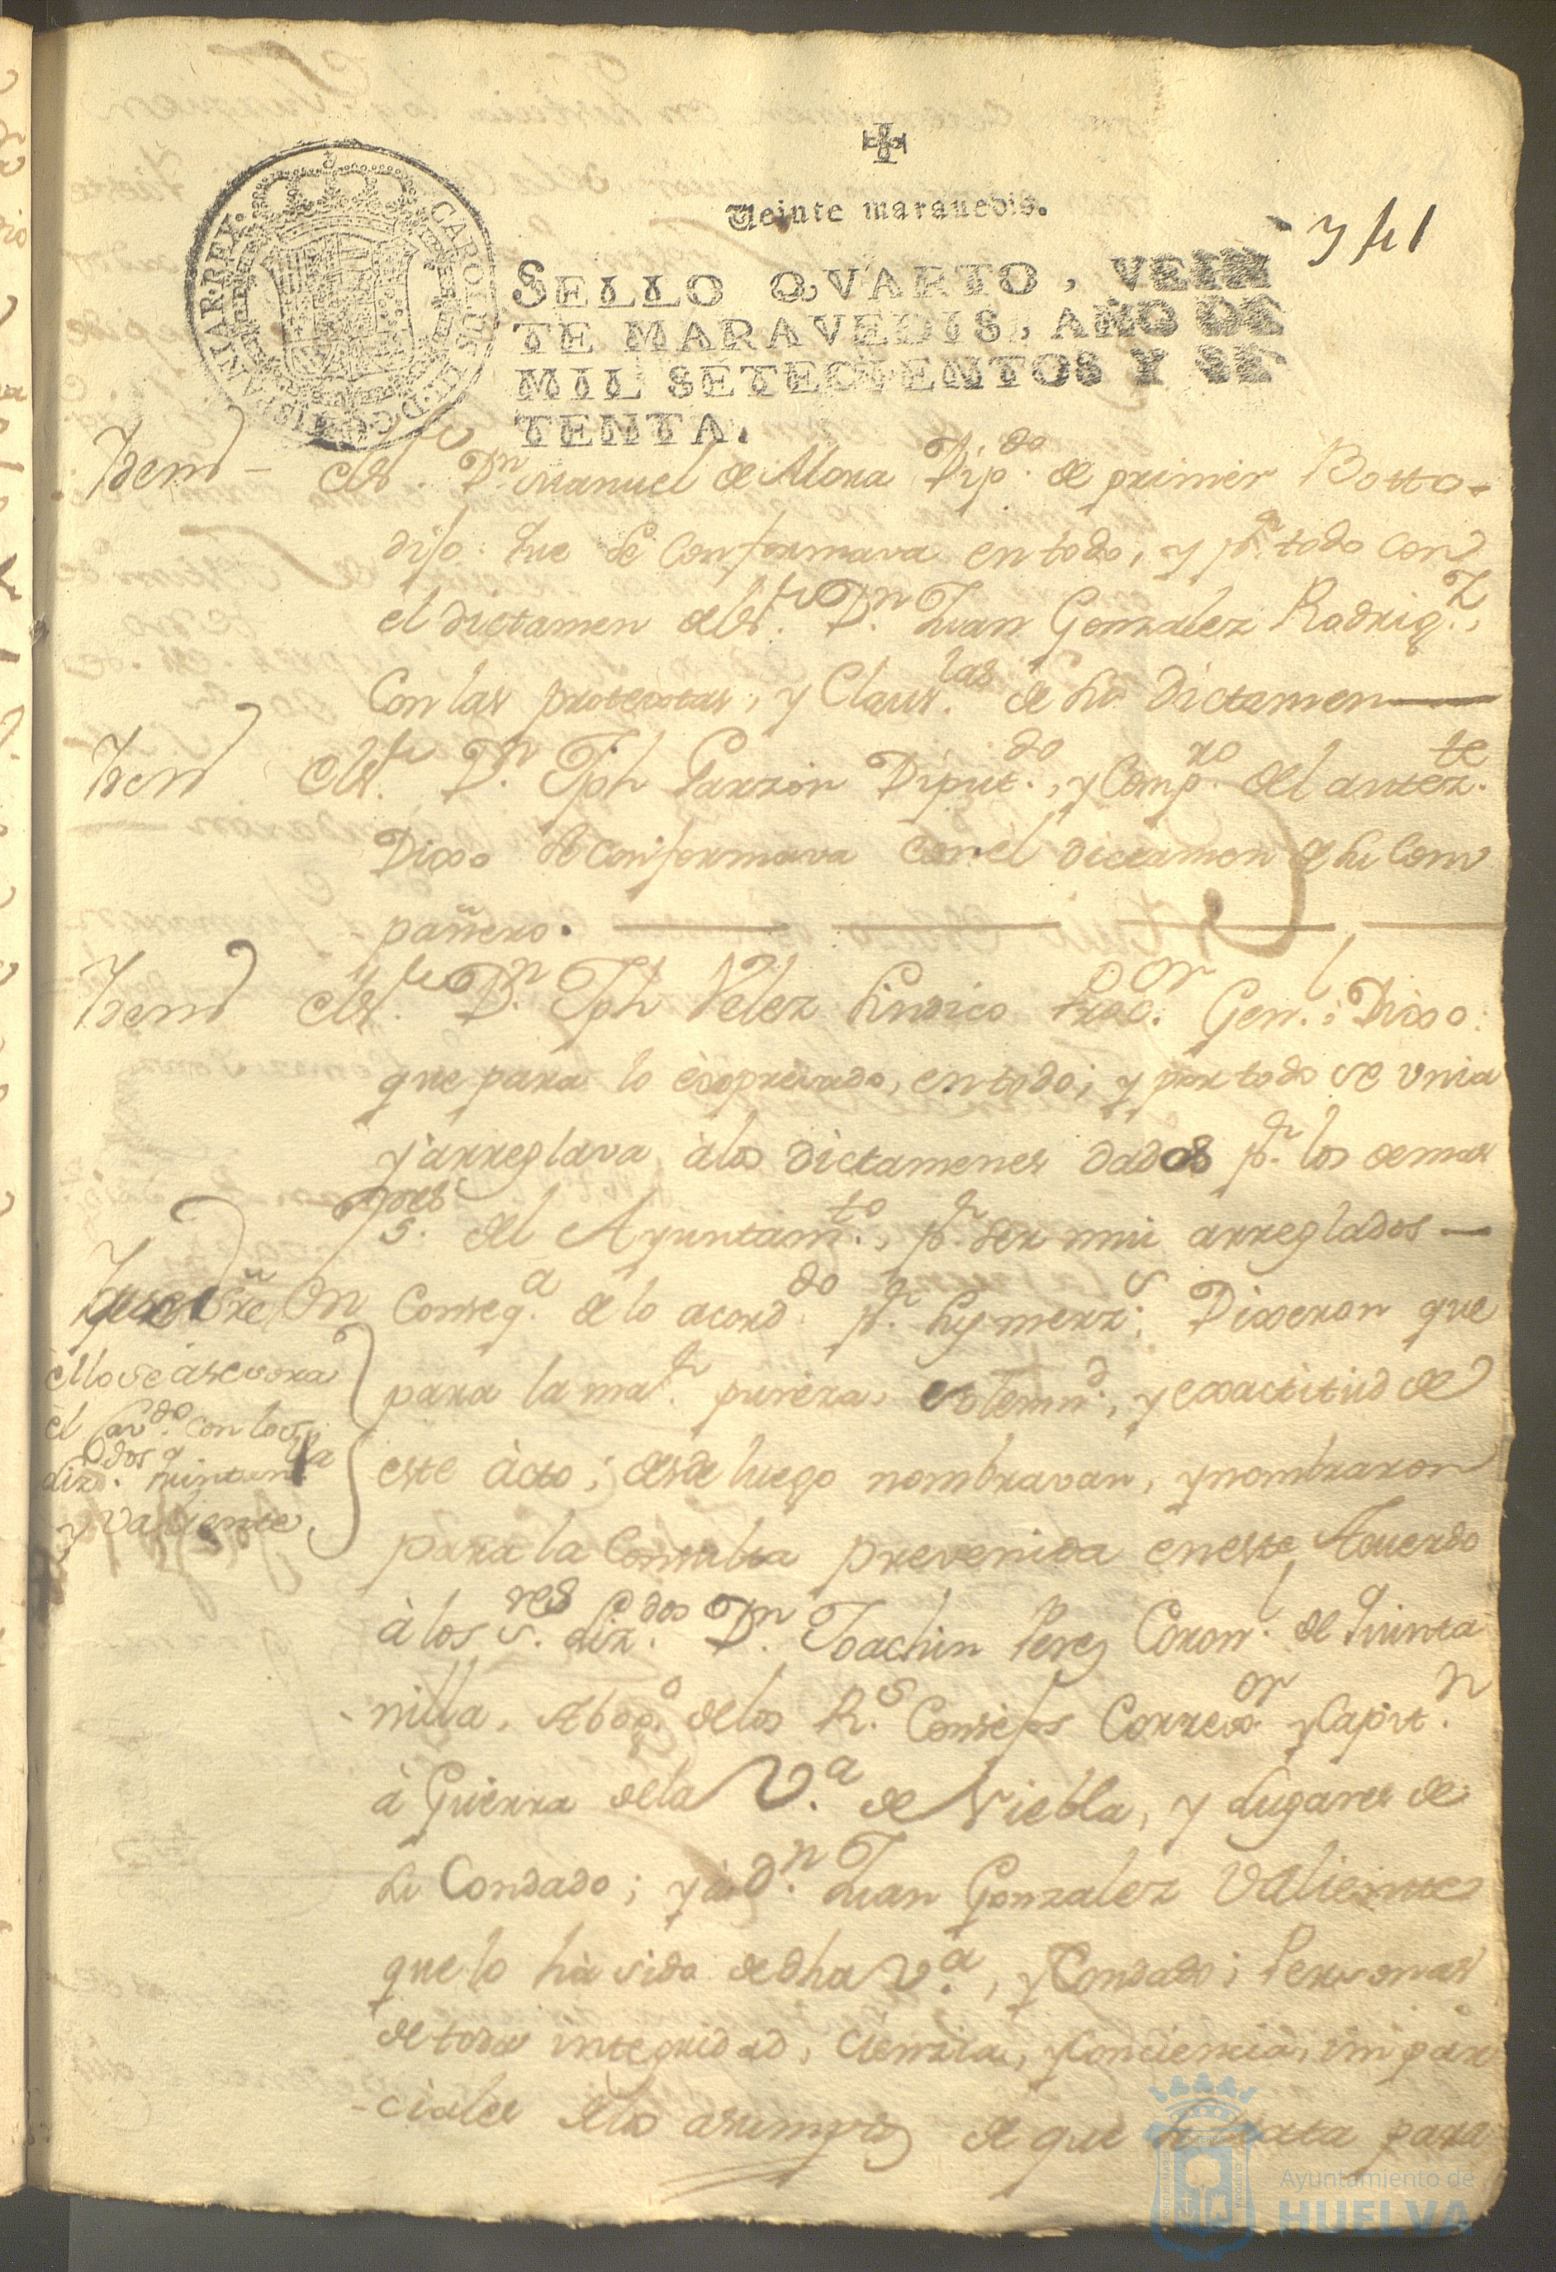 Veinte maravedis.
SELLO QVARTO, VEIN
TE MARAVEDIS, AÑO DE
MIL SETECIENTOS Y SE
TENTA.
CAROLUS III. D. G. HISPANIAR. REX.
341
Item – el S.r D.n Manuel de Mora Dip.do de primer Botto
dijo: que se conformava en todo, y p.r todo con
el dictamen del S.r D.n Juan Gonzalez Rodrig.z,
con las protextas, y Claus.las de su dictamen
Item el S.r D.n Jph Garzon Diput.do, y Comp.ro del antez.te
Dixo se conformava con el dictamen de su Com
pañero.
Item el S.r D.n Jph Velez Sindico Proc.or Gen.l; Dixo:
que para lo expresado, en todo, y por todo se unia
y arreglava à los dictamenes dados p.r los demas
S.res del Ayuntam.to, p.r ser mui arreglados
En Conseq.a de lo acord.do p.r sus merz.s; Dixeron que
para la ma.r pureza, solemn.d, y exactitud de
este àcto; desde luego nombravan, y nombraron
para la Consulta prevenida en este Acuerdo
à los S.res Liz.dos D.n Joachin Perez Coron.l de Quinta
nilla, Abog.o de los R.s Consejos Correx.or y Capit.n
à Guerra de la V.a de Niebla, y Lugares de
su Condado; y à D.n Juan Gonzalez Valiente
que lo hà sido de dha V.a, y Condado; Personas
de toda integridad, ciencia, y conciencia, impar
ciales de los asumptos de que se trata para
ello se asesora
el Cav.do con los
Liz.dos Quintan.lla
y Valiente
Ayuntamiento de
HUELVA